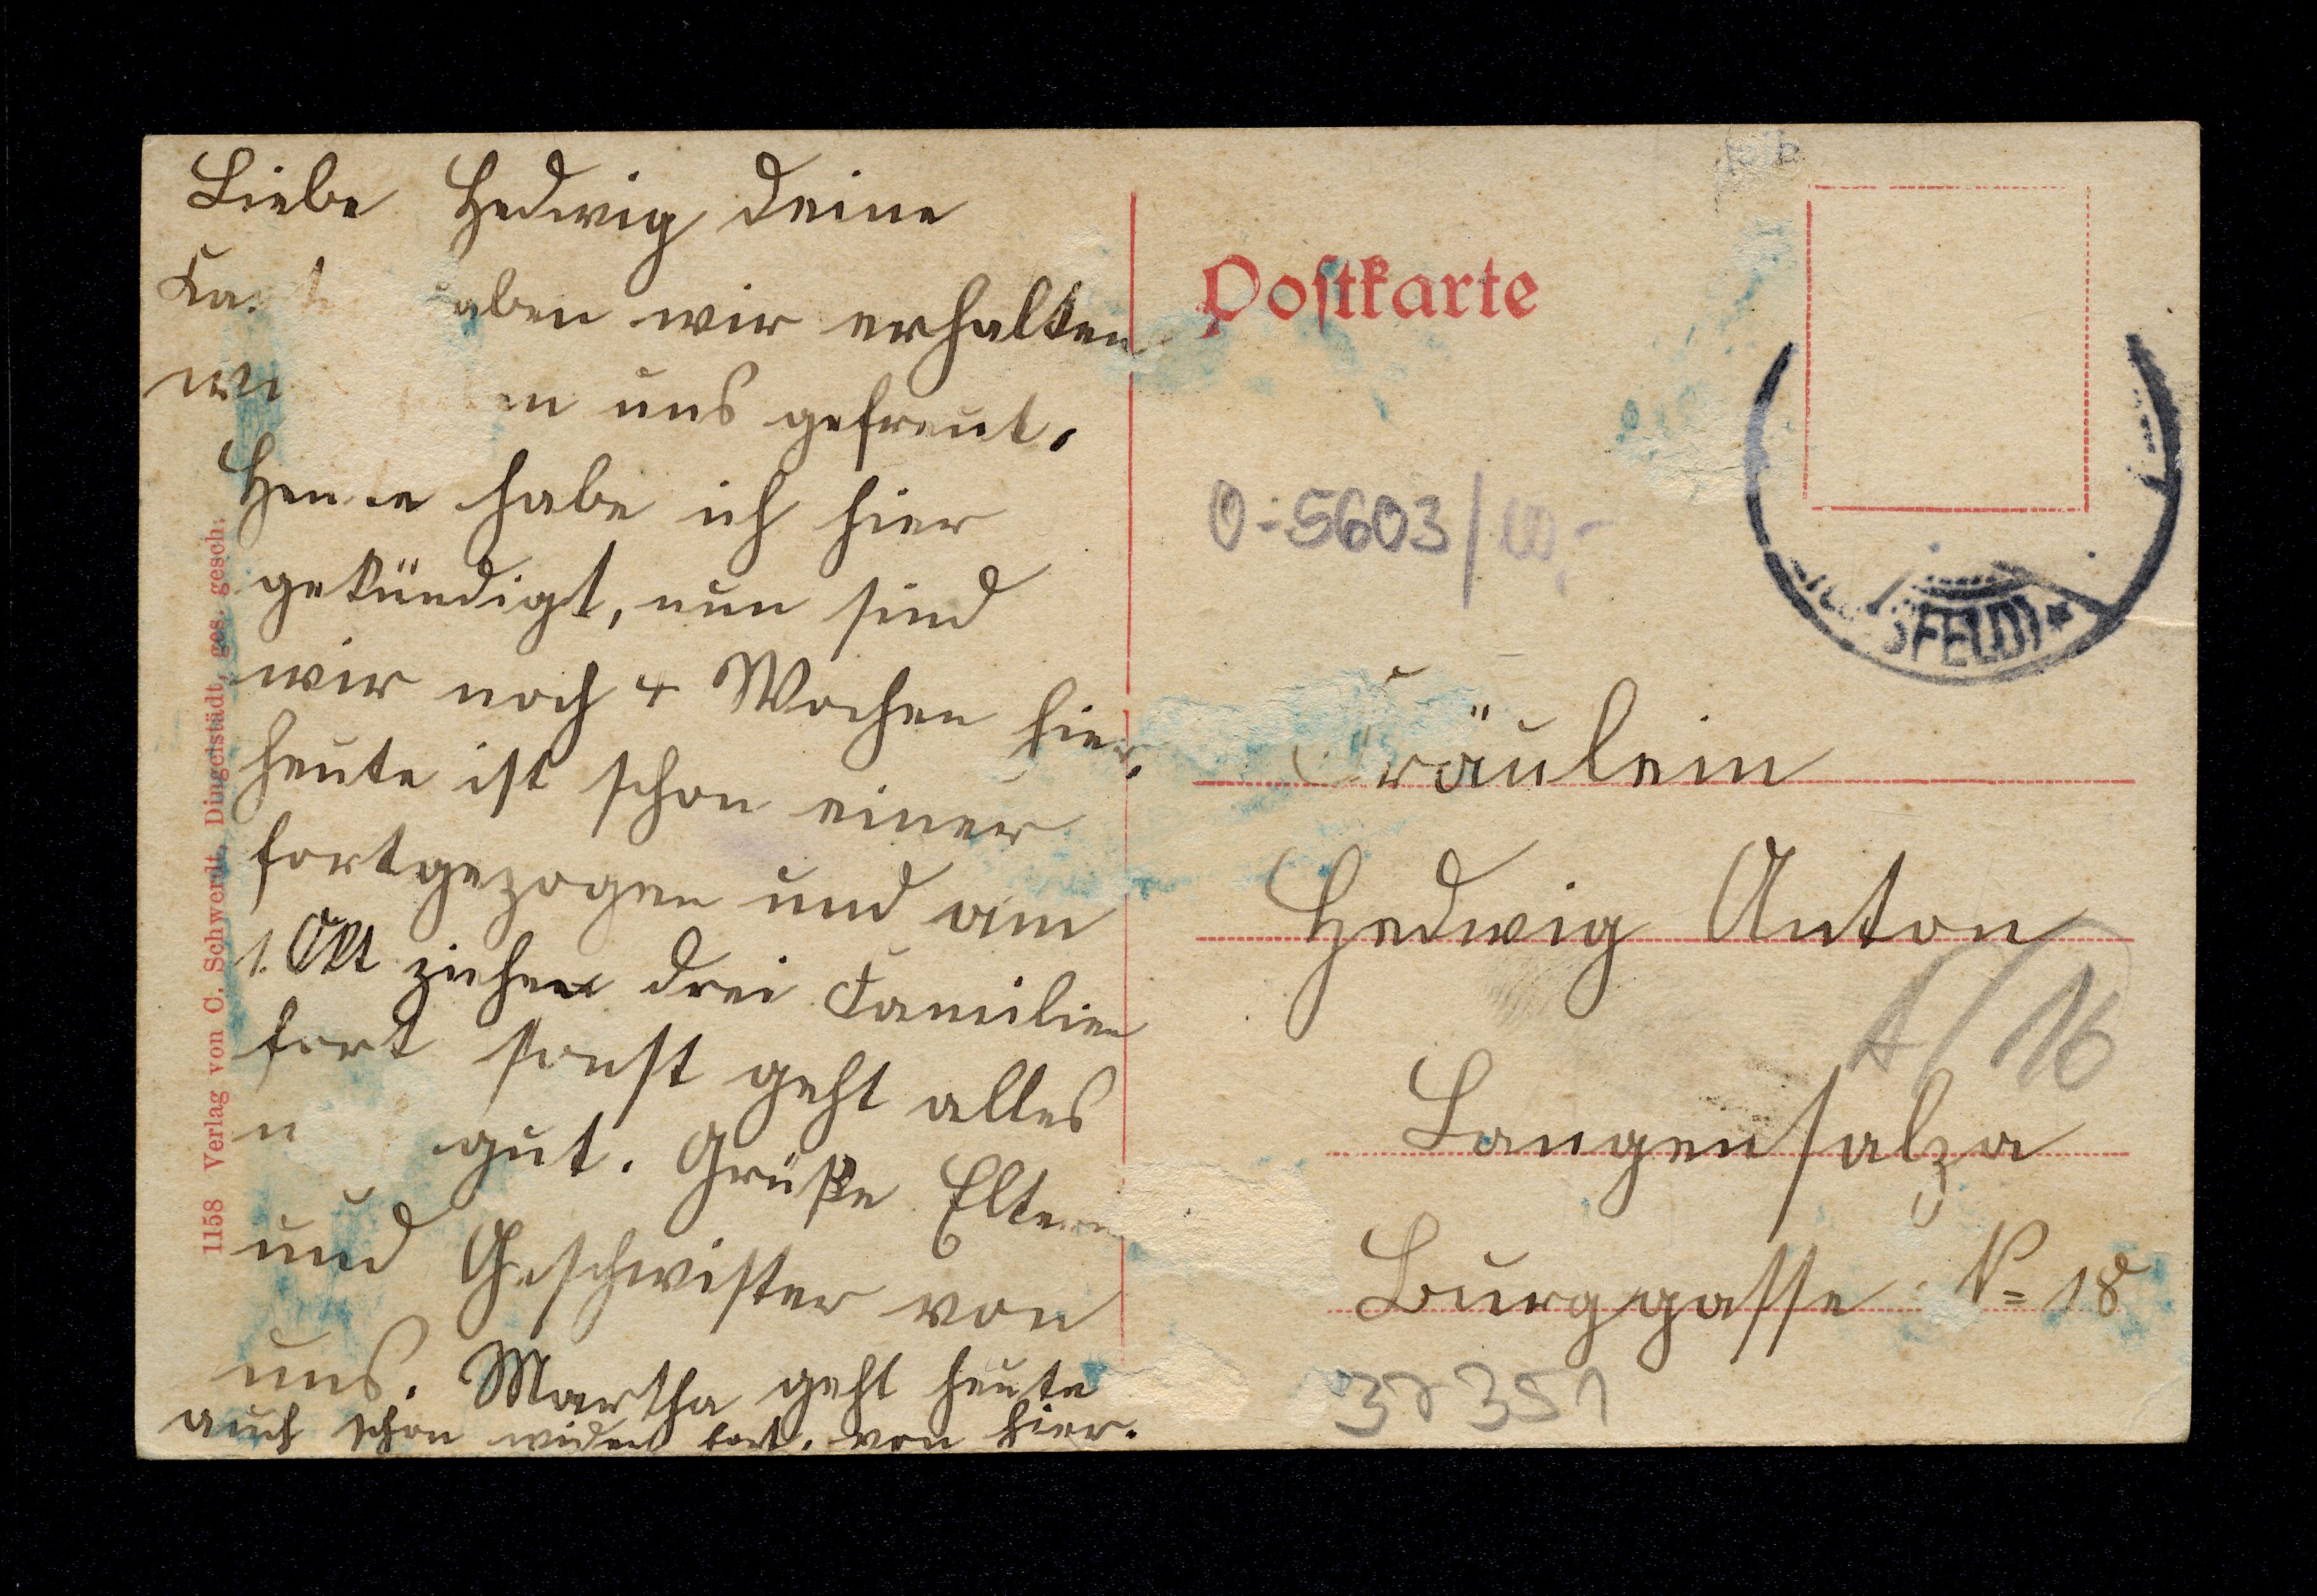 Liebe Hedwig deine
aben wir erhalten
uns gefreut.
Heute habe ich hier
gekündigt, nun sind
wir noch 4 Wochen hier.
heute ist schon einer
fortgezogen und am
1. Okt ziehen drei Familien
fort sonst geht alles
gut. Grüße Eltern
und Geschwister von
uns. Martha geht heute
auch schon wider fort. von hier.
1158 Verlag von C. Schwerdt, Dingelstädt, ges. gesch.
Postkarte
0-5603/10,-
SFELD *
Fräulein
Hedwig Anton
A/16
Langensalza
Burggasse № 18
37351